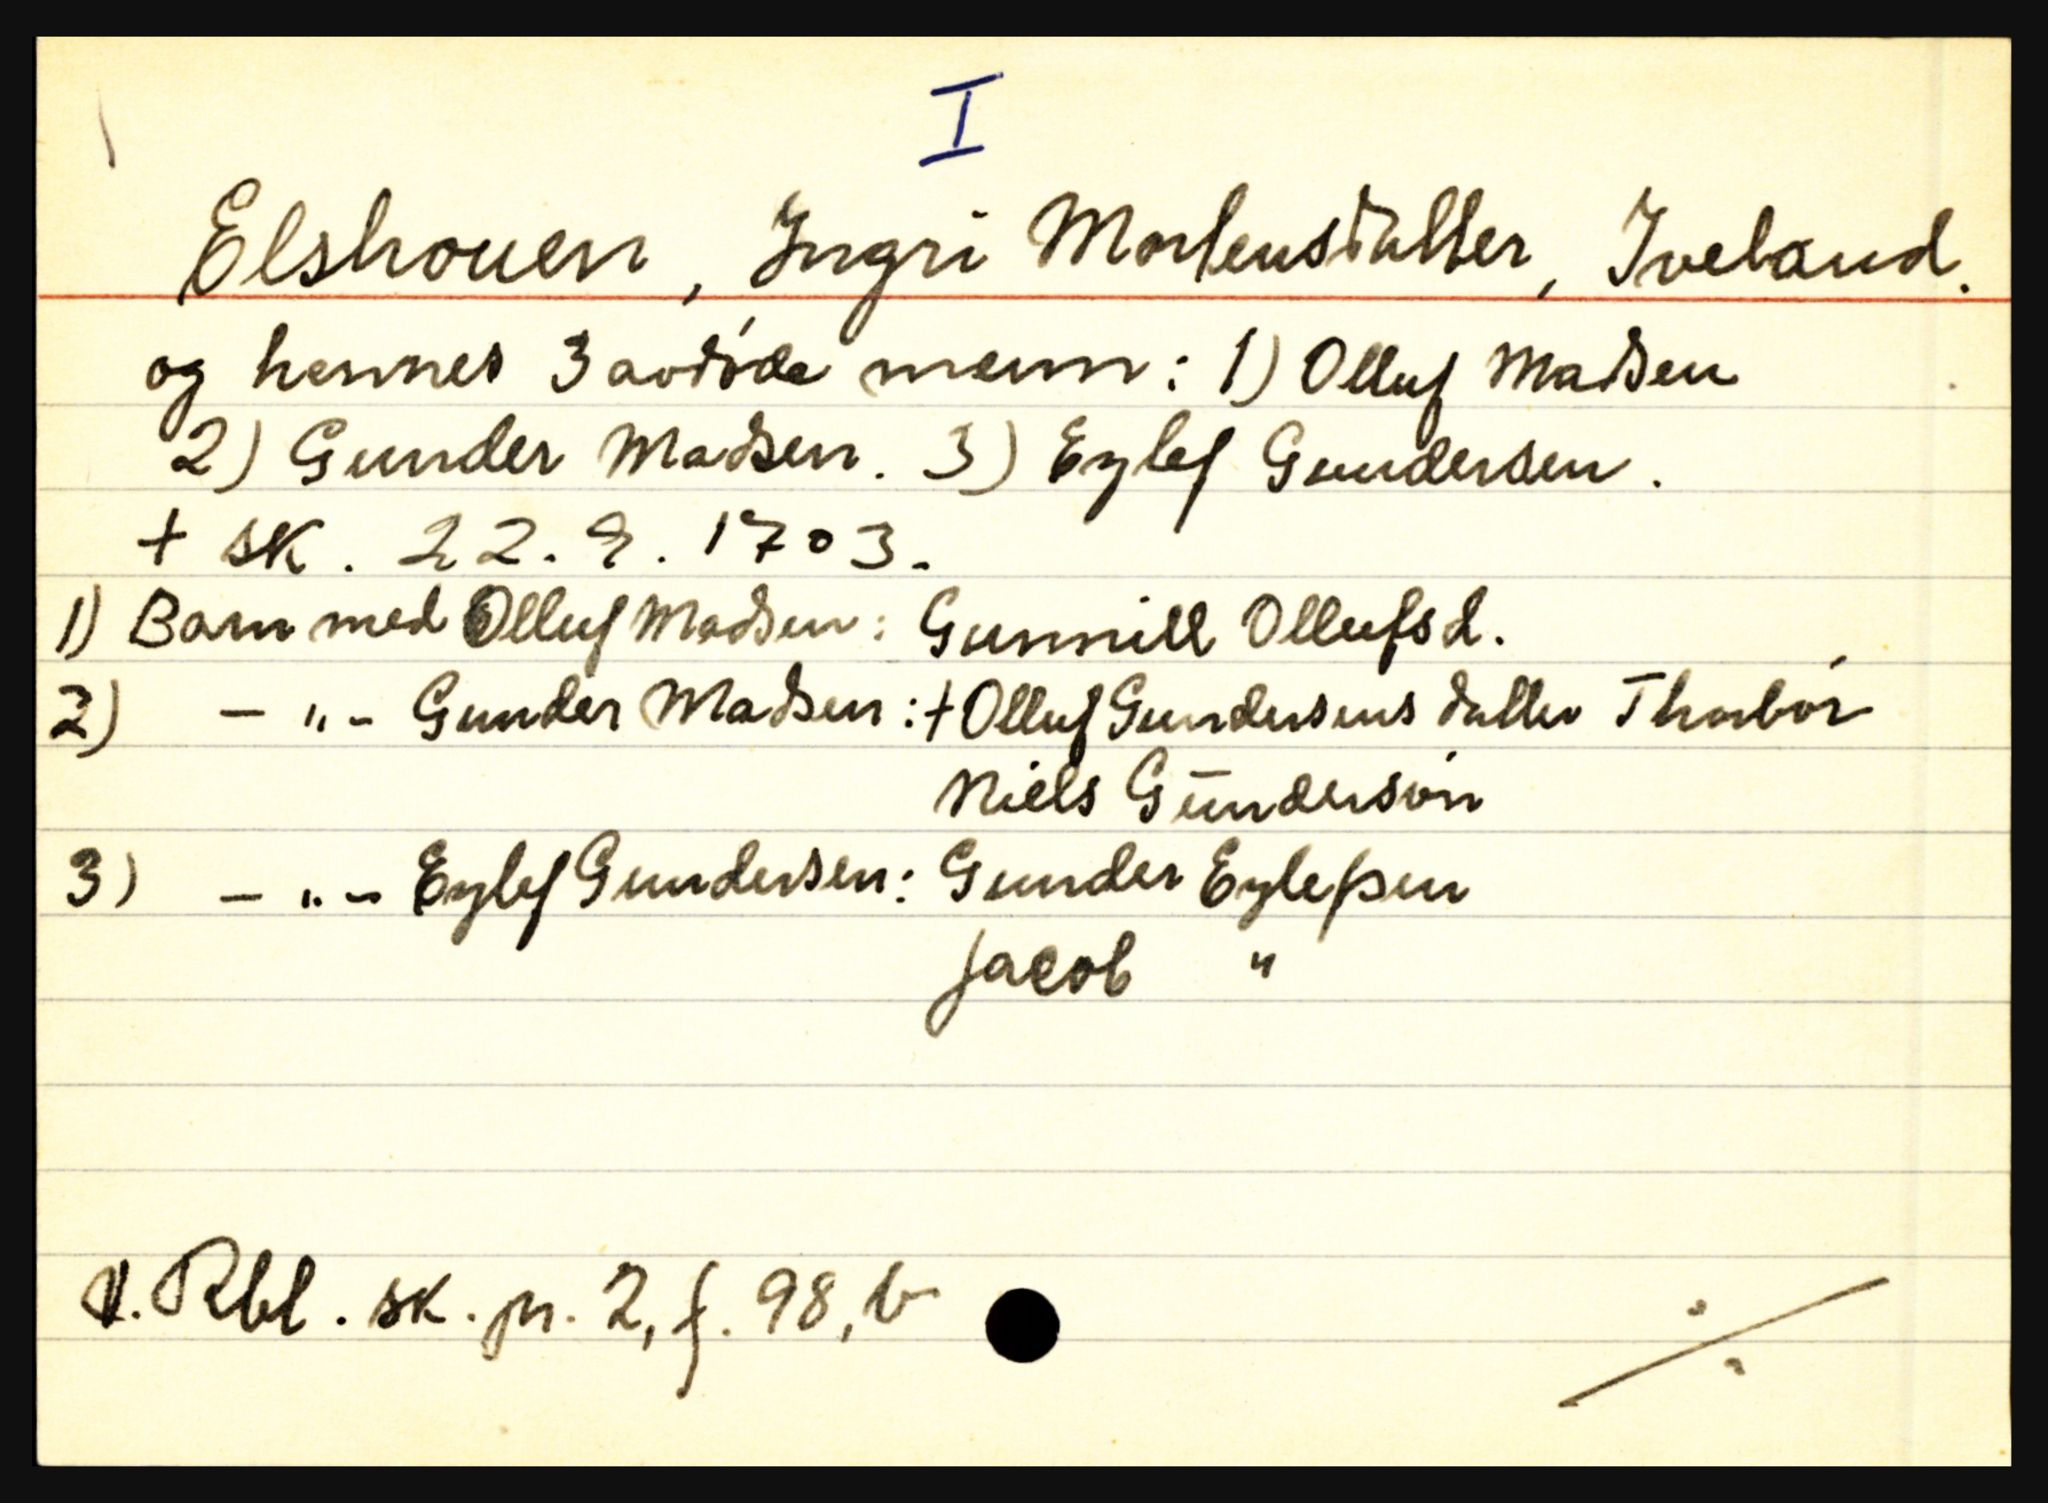 I
Elshouen, Ingri Mortensdatter, Iveland.
og hennes 3 avdøde menn: 1) Olluf Madsen
2) Gunder Madsen. 3) Eylef Gundersen.
+ sk. 22.9.1703.
1) Barn med Olluf Madsen: Gunnill Ollufsd.
2) - " - Gunder Madsen: + Olluf Gundersens datter Thorbór
Niels Gundersøn
3) - " - Eylef Gundersen: Gunder Eylefsen
Jacob "
V. Rbl. sk. pr. 2, f. 98, b